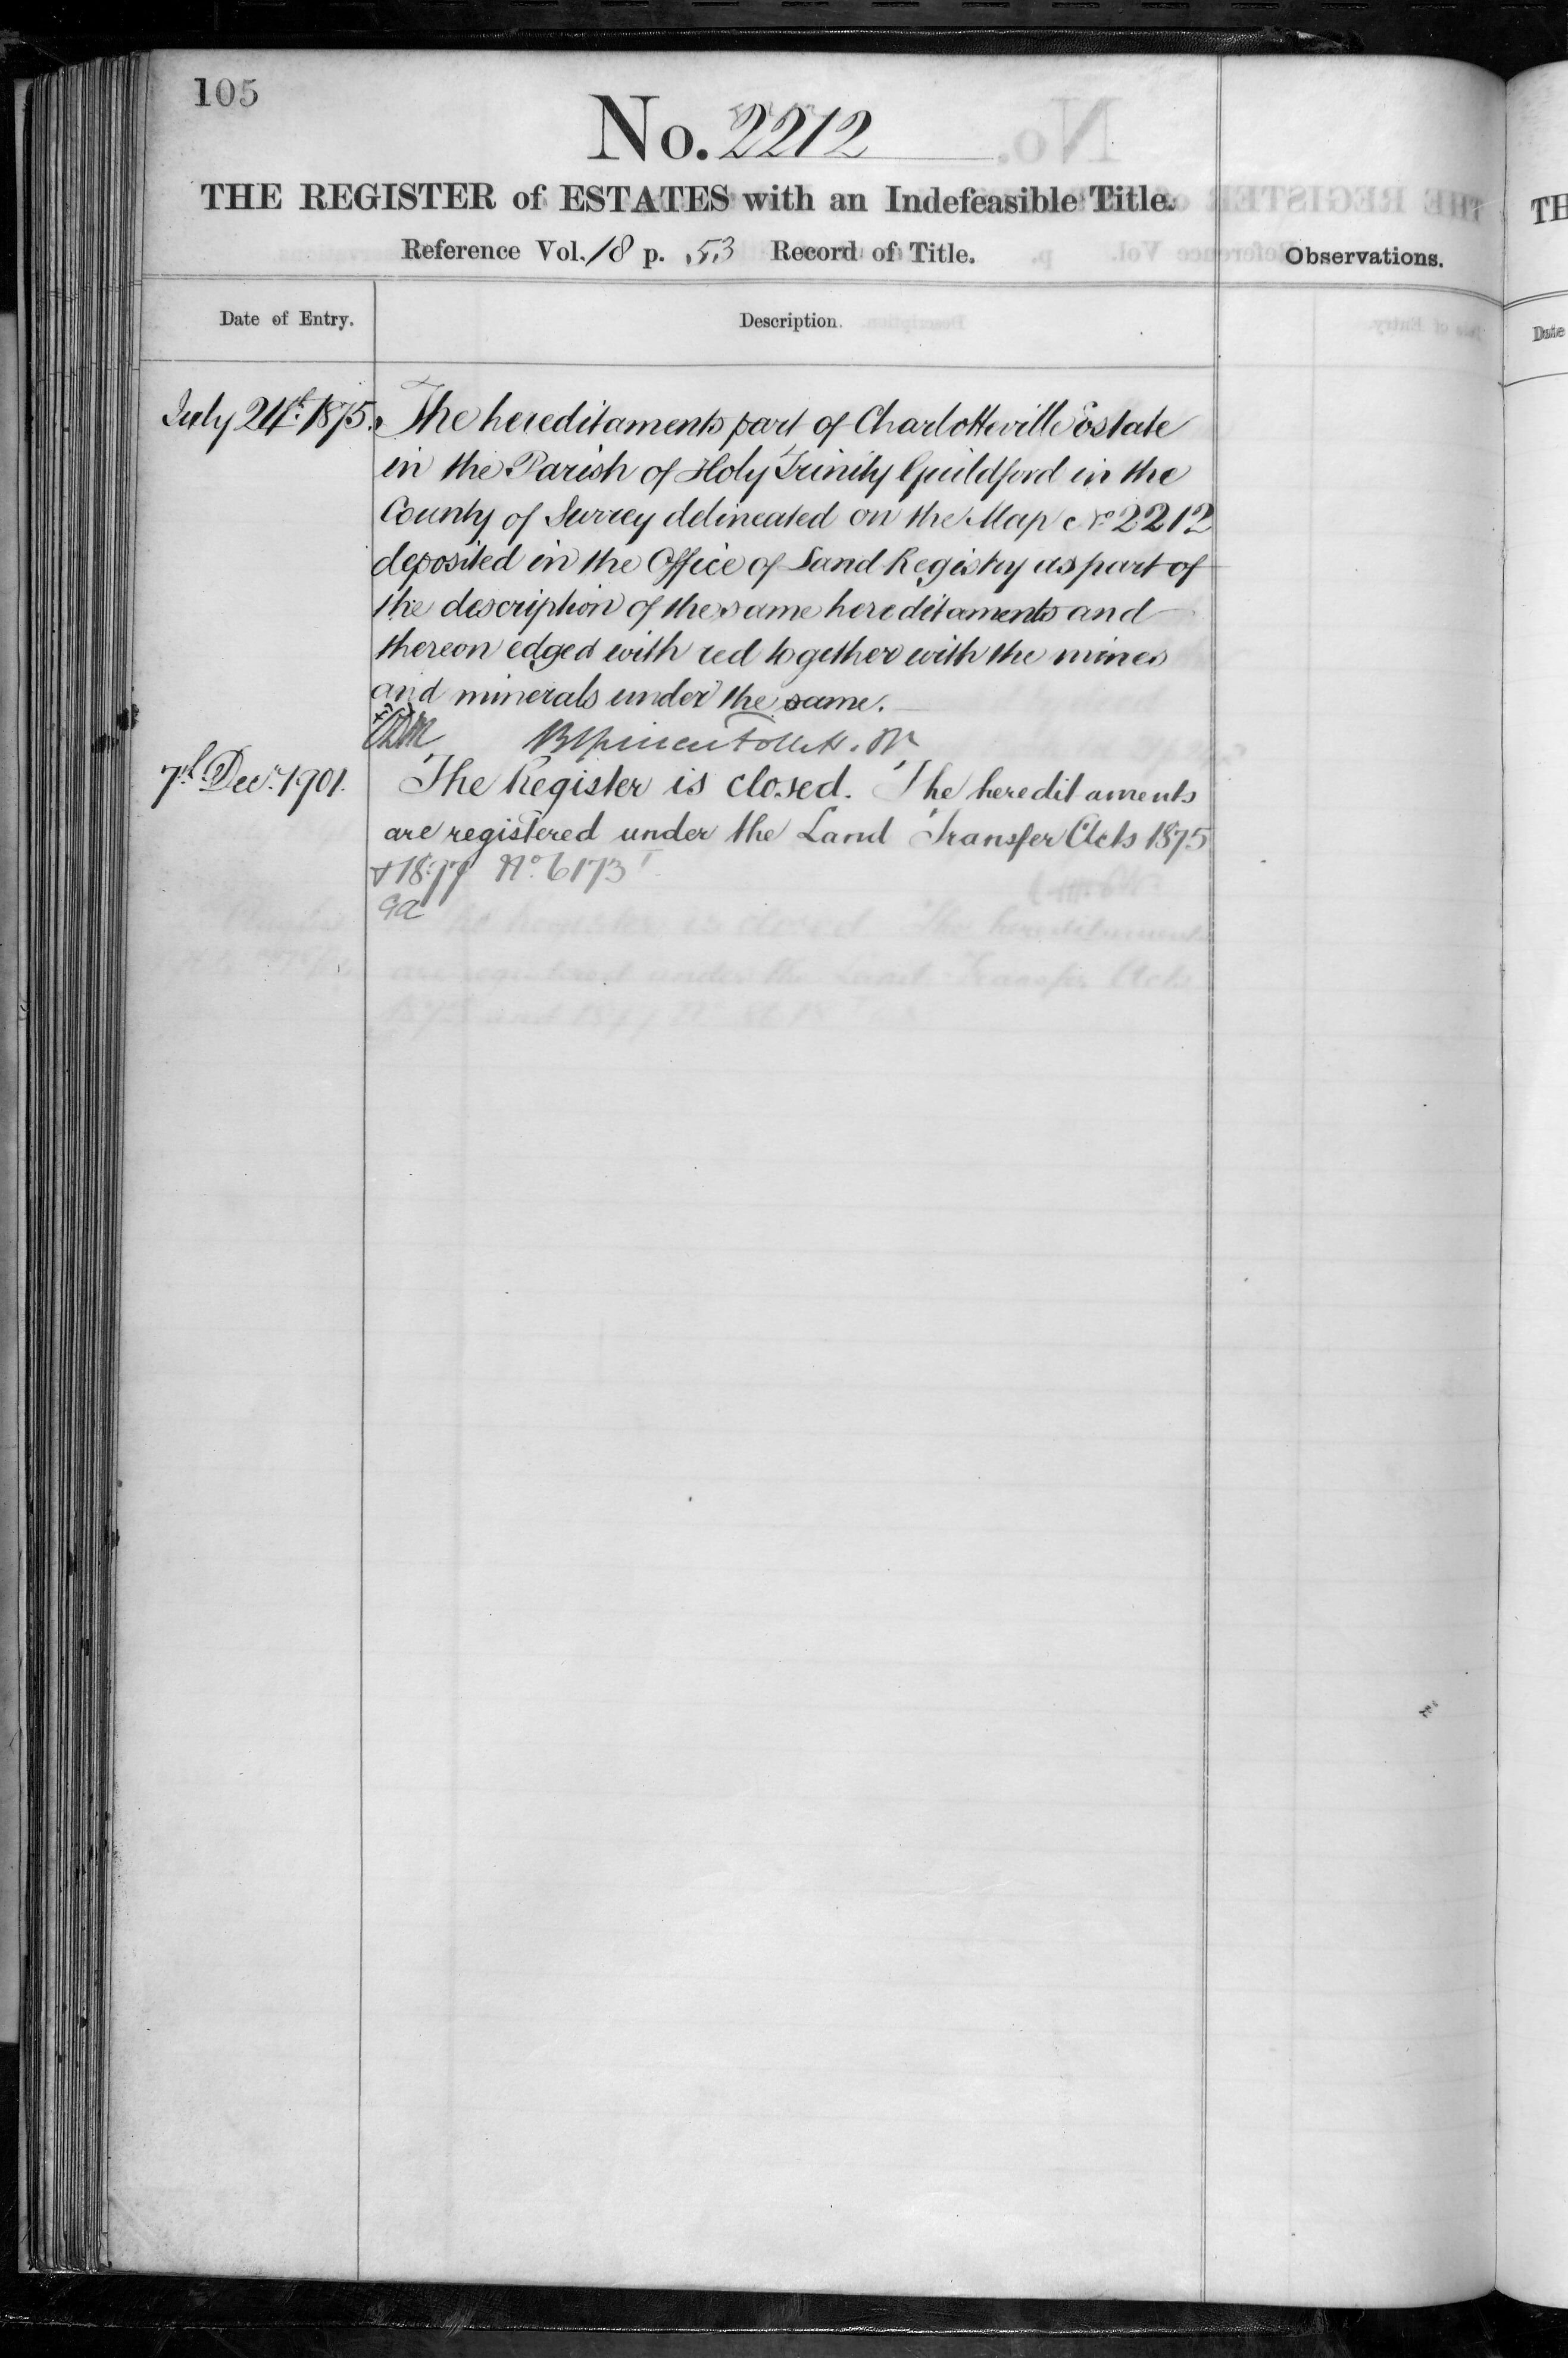 105
No. 2212
THE REGISTER of ESTATES with an Indefeasible Title.
Reference Vol. 18 p. 53 Record of Title.
Observations.
Date of Entry.
Description.
July 24th 1875. The hereditaments part of Charlotteville Estate
in the Parish of Holy Trinity Guildford in the
County of Surrey delineated on the Map No 2212
deposited in the Office of Land Registry as part of
the description of the same hereditaments and
thereon edged with red together with the mines
and minerals under the same.
7th Decr 1901. The Register is closed. The hereditaments
are registered under the Land Transfer Acts 1875
& 1897 No. 6173
TH
Date